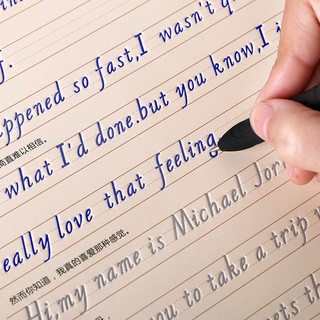 I wasn't
ppened so fast,I
简直难以相信。
what I'd done.but you know,I
eally love that feeling
然而你知道，我真的喜爱那种感觉。
Hi,my name is Michael Jor
you to take a trip